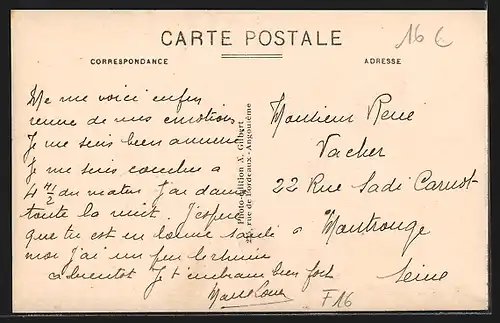 CARTE POSTALE
16 €
CORRESPONDANCE
ADRESSE
Me me voici enfin
remie de mes emotions
Je me suis bien amusée
Je me suis couchée a
4 h/2 du matin J'ai dansé
toute la nuit. J'espère
que tu est en bonne santé
moi j'ai un peu le rhume
a bientot Je t'embrasse bien fort
Photo-Edition X. Gilbert
rue de Bordeaux-Angoulême
Monsieur René
Vacher
22 Rue Sadi Carnot
a Montrouge
Seine
F16